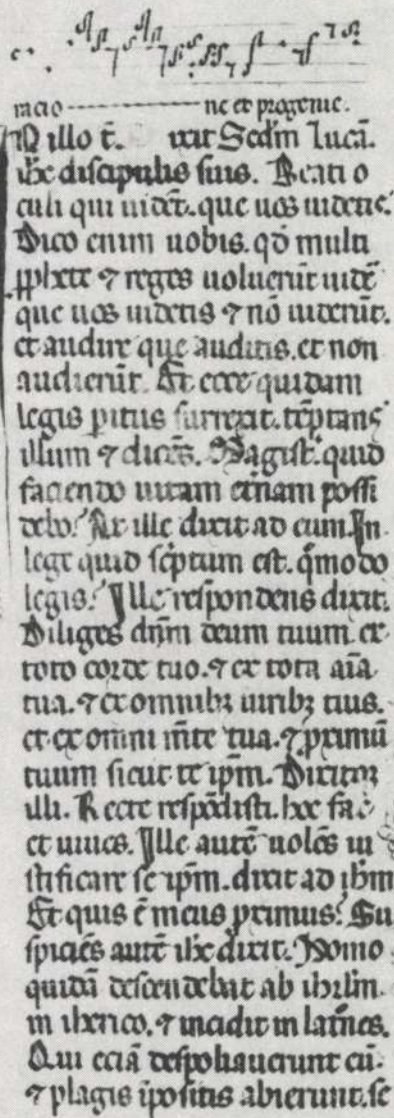 nacio ne et progenie.
In illo t̄. dixit Sedm̄ Lucā.
ihc̄ discipulis suis. Beati o
culi qui uidēt. que uos uidetis.
Dico enim uobis. qđ multi
ꝓphete ⁊ reges uoluerūt uidē
que uos uidetis ⁊ nō uiderūt.
et audire que auditis. et non
audierūt. Et ecce quidam
legis ꝑitus surrexit. tēptans
illum ⁊ dicēs. Magist̄. quid
faciendo uitam et̄nam possi
debo? At ille dixit ad eum. In
lege quid sc̄ptum est. qͦmodo
legis? Ille respondens dixit.
Diliges dn̄m deum tuum ex
toto corde tuo. ⁊ ex tota aīa
tua. ⁊ ex omnibꝫ uiribꝫ tuis.
et ex omni m̄te tua. ⁊ ꝓximū
tuum sicut te ip̄m. Dixitqꝫ
illi. Recte respōdisti. hoc fac
et uiues. Ille autē uolēs iu
stificare se ip̄m. dixit ad ihm̄
Et quis ē meus ꝓximus? Su
spiciēs autē ihc̄ dixit. Homo
quidā descendebat ab ihrlm̄
in iherico. ⁊ incidit in lat̄nes.
Qui eciā despoliauerunt eū.
⁊ plagis īpositis abierunt. se